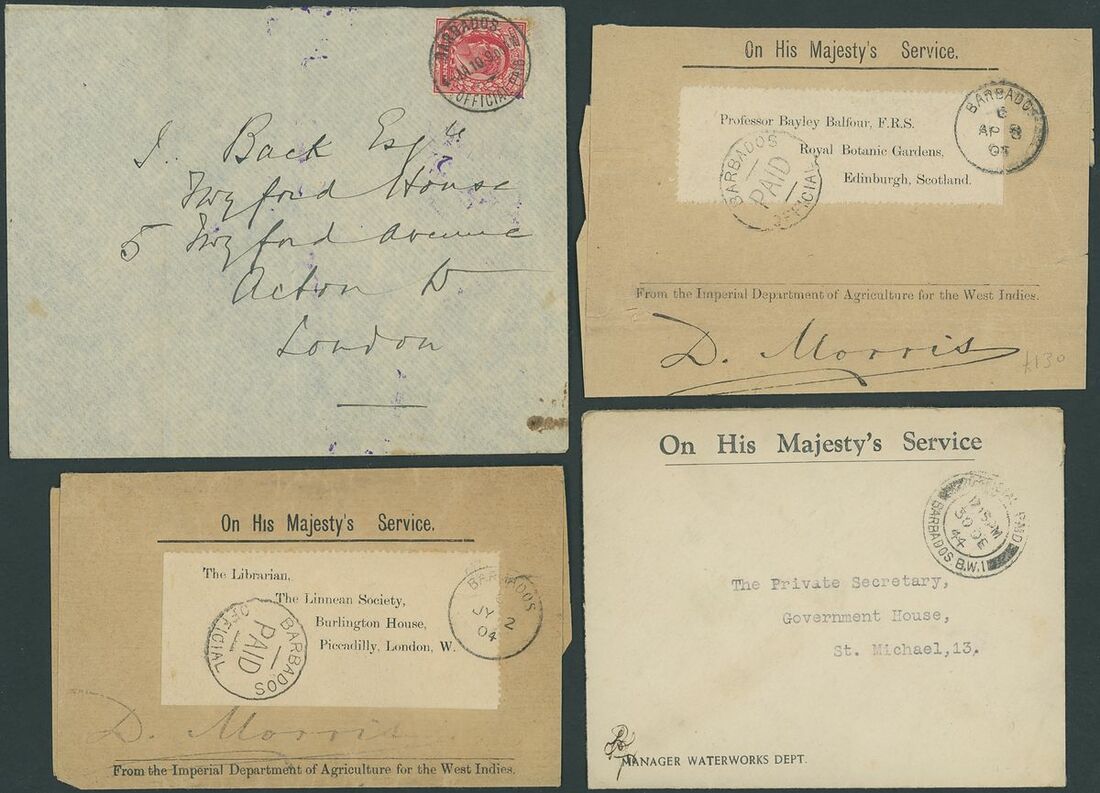 BARBADOS
OFFICIAL PAID
J. Back Esq
Twyford House
5 Twyford Avenue
Acton W
London
On His Majesty's Service.
Professor Bayley Balfour, F.R.S.
Royal Botanic Gardens,
Edinburgh, Scotland.
BARBADOS
AP
BARBADOS
PAID
OFFICIAL
From the Imperial Department of Agriculture for the West Indies.
D. Morris
£130
On His Majesty's Service.
The Librarian,
The Linnean Society,
Burlington House,
Piccadilly, London, W.
BARBADOS
JY 2
04
BARBADOS
PAID
OFFICIAL
D. Morris
From the Imperial Department of Agriculture for the West Indies.
On His Majesty's Service
OFFICIAL PAID
12 15 PM
30 DE
44
BARBADOS B.W.I
The Private Secretary,
Government House,
St. Michael,13.
MANAGER WATERWORKS DEPT.